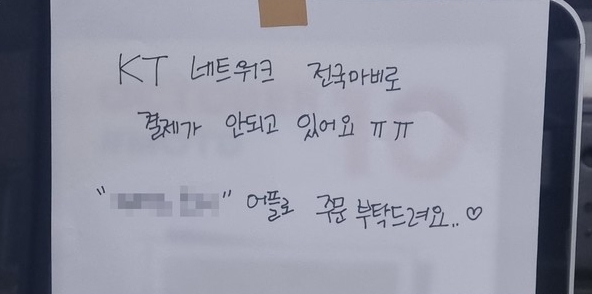 KT 네트워크 전국마비로
결제가 안되고 있어요 ㅠㅠ
" "어플로 주문 부탁드려요..♡